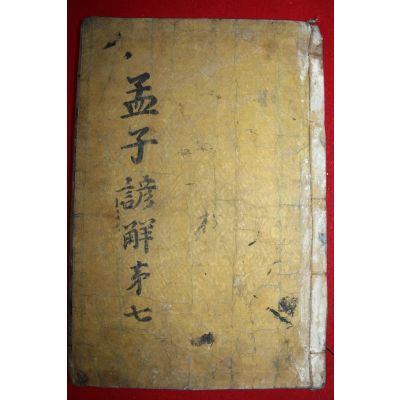 孟子諺解苐七